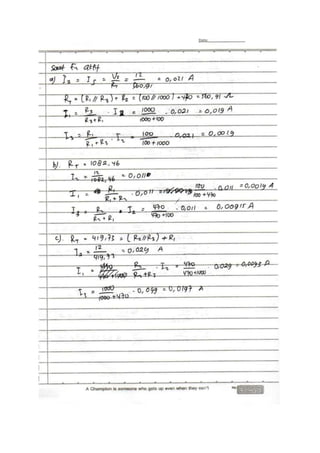 Date
a) I₂ = I₅ = Vs / RT = 12 / 560,91 = 0,021 A
RT = (R₁ // R₃) + R₂ = (100 // 1000) + 470 = 560,91 Ω
I₁ = R₃ / R₃+R₁ · I₂ = 1000 / 1000+100 · 0,021 = 0,019 A
I₃ = R₁ / R₁+R₃ · I₂ = 100 / 100+1000 · 0,021 = 0,0019
b). RT = 1082,46
I₂ = 12 / 1082,46 = 0,011
I₁ = R₁ / R₁+R₂ · 0,011 = 100 / 100+470 · 0,011 = 0,0019 A
I₃ = R₂ / R₂+R₁ · I₂ = 470 / 470+100 · 0,011 = 0,00915 A
c). RT = 419,73 = (R₂//R₃) + R₁
I₂ = 12 / 419,73 = 0,029 A
I₁ = R₂ / R₂+R₃ · I₂ = 470 / 470+1000 0,029 = 0,0093 A
I₃ = 1000 / 1000+470 · 0,029 = 0,0197 A
A Champion is someone who gets up even when they can't